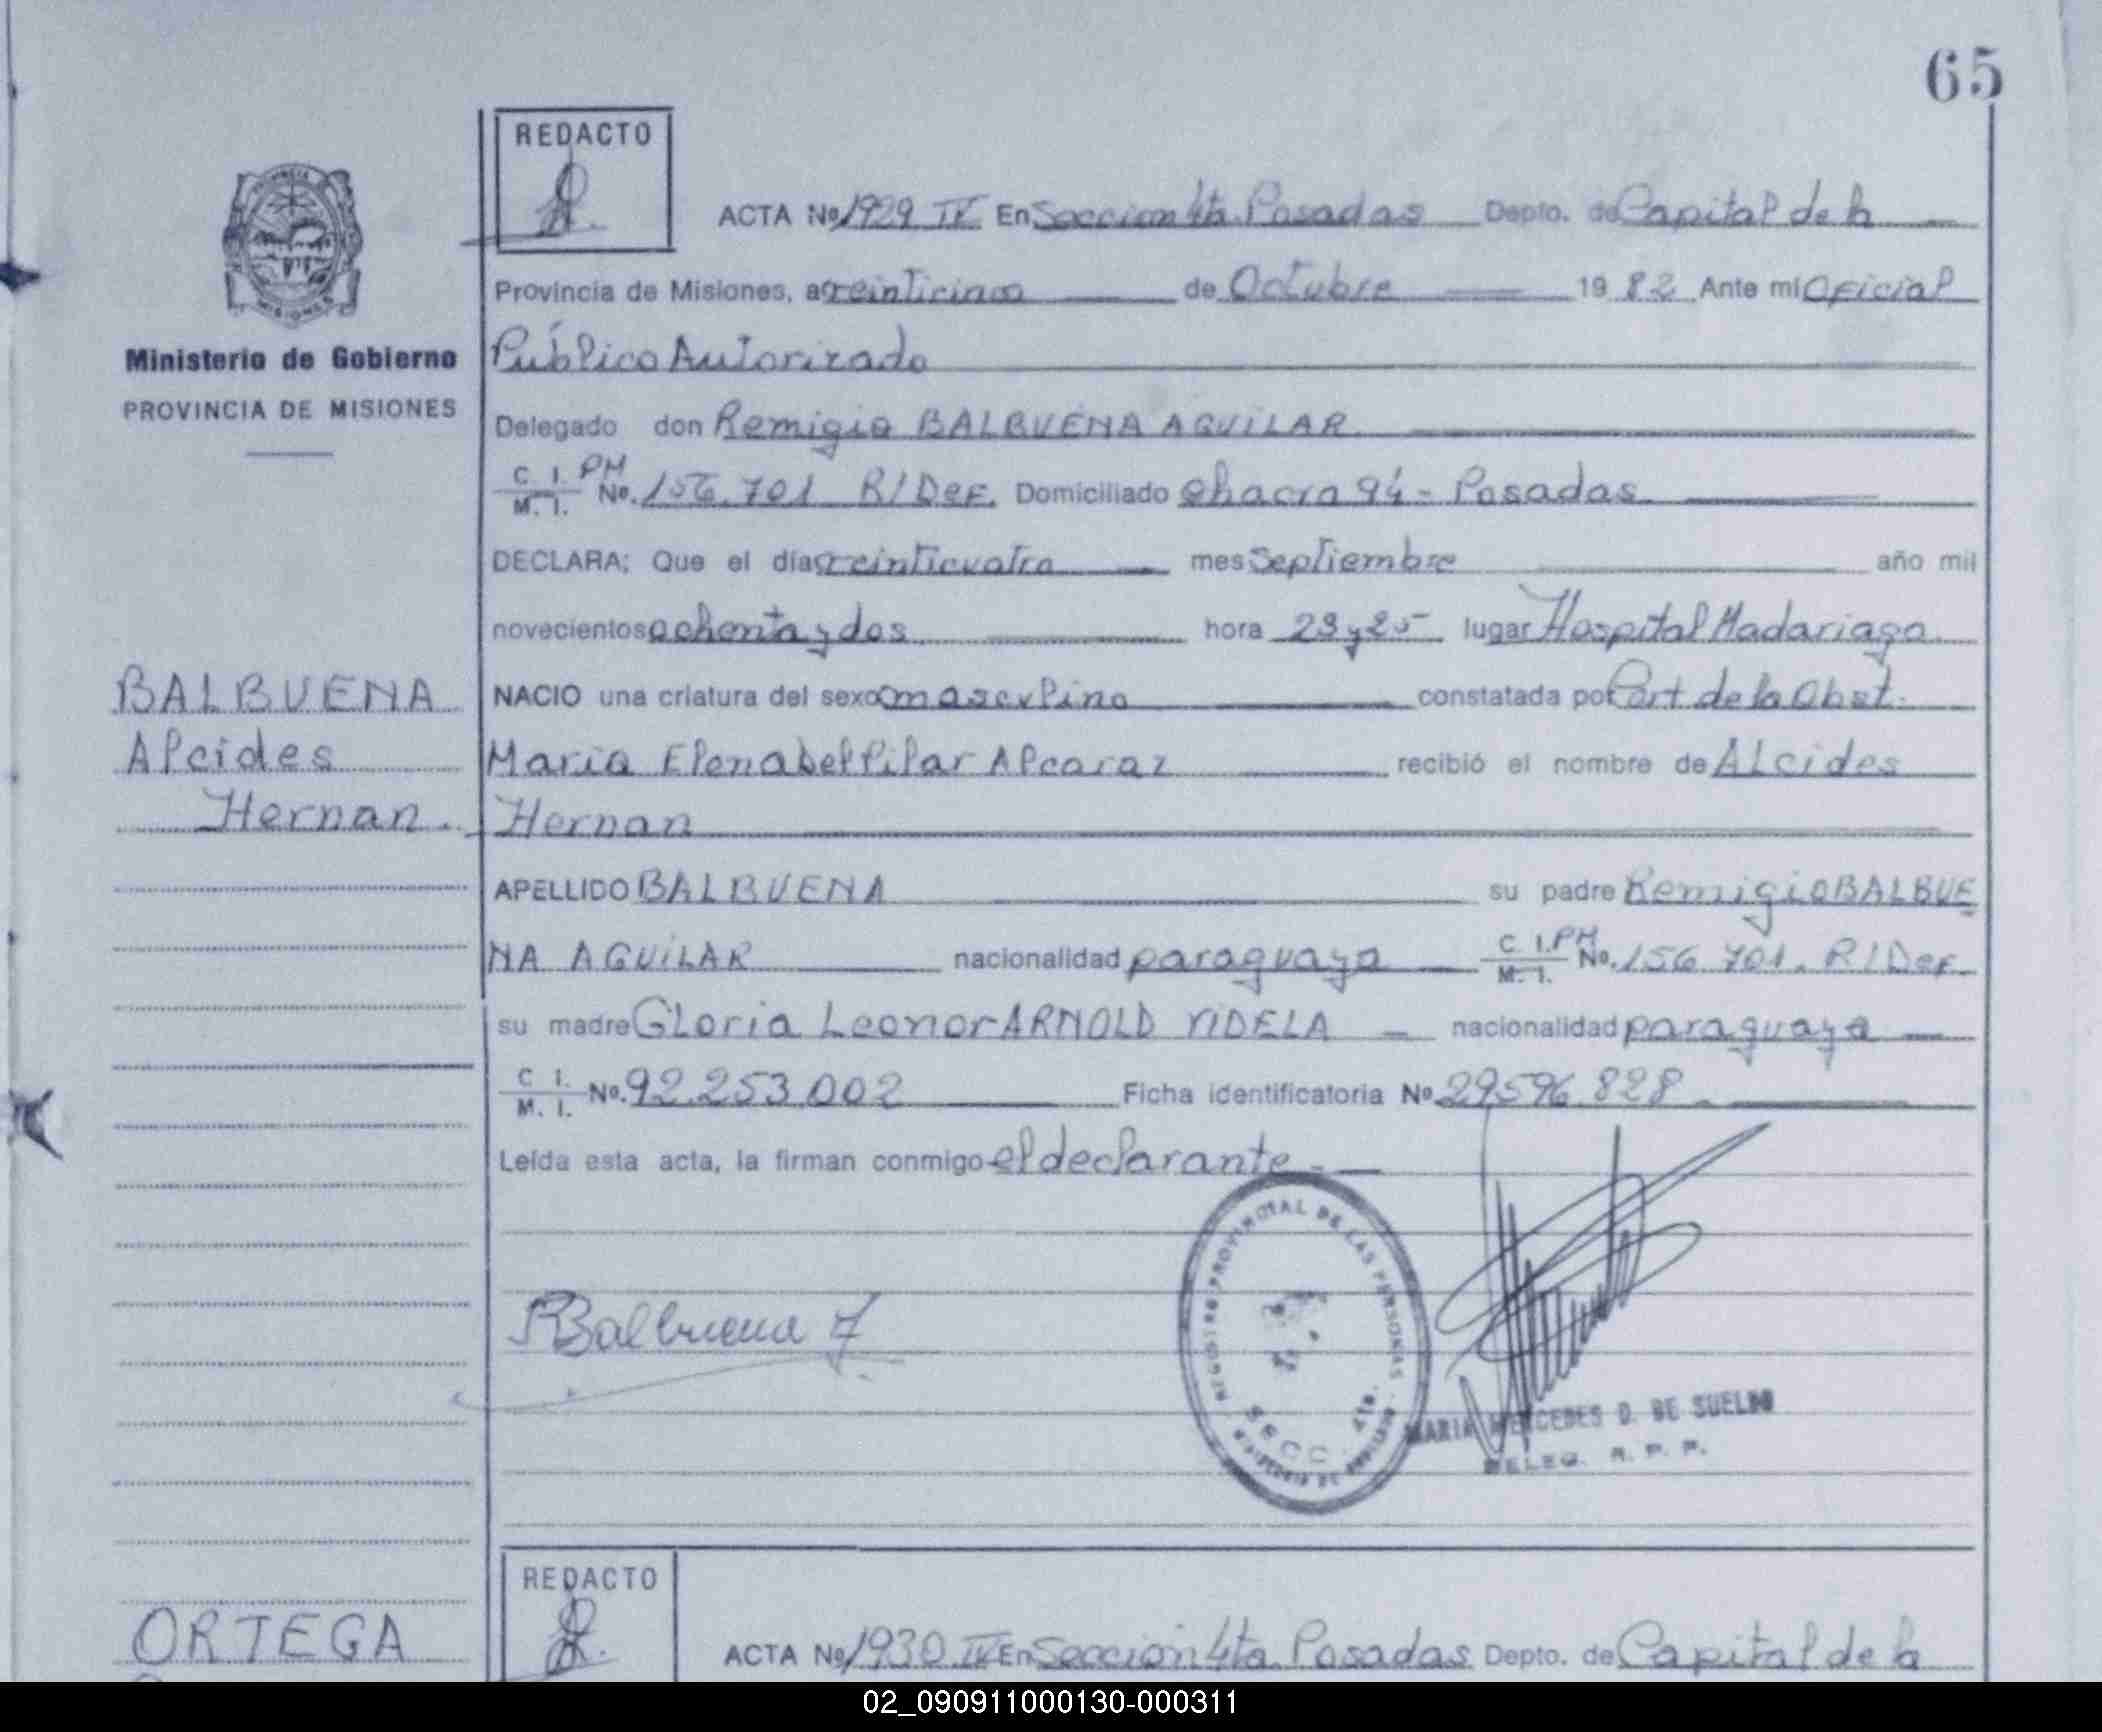 65
REDACTO
ACTA Nº 1929 IV En Seccion 4ta. Posadas Depto. de Capital de la
Provincia de Misiones, a veinticinco de Octubre 19 82 Ante mi Oficial
Ministerio de Gobierno
Público Autorizado
PROVINCIA DE MISIONES
Delegado don Remigio BALBUENA AGUILAR
C. I. PM
M. I. No. 156.701 R/Def. Domiciliado Chacra 94 - Posadas
DECLARA; Que el día veinticuatro mes Septiembre año mil
novecientos ochenta y dos hora 23 y 25 lugar Hospital Madariaga
BALBUENA
NACIO una criatura del sexo masculino constatada por Cert de la Obst.
Alcides
Maria Elena del Pilar Alcaraz recibió el nombre de Alcides
Hernan.
Hernan
APELLIDO BALBUENA su padre Remigio BALBUE
NA AGUILAR nacionalidad paraguaya C. I. PM
M. I. No. 156.701. R/Def.
su madre Gloria Leonor ARNOLD VIDELA - nacionalidad paraguaya
C. I.
M. I. No. 92.253.002 Ficha identificatoria Nº 29596.828
Leída esta acta, la firman conmigo el declarante.
RBalbuena
REGISTRO PROVINCIAL DE LAS PERSONAS
SECC. 4ta.
MINISTERIO DE GOBIERNO
MARIA MERCEDES D. DE SUELDO
DELEG. R. P. P.
REDACTO
ORTEGA
ACTA Nº 1930 IV En Seccion 4ta. Posadas Depto. de Capital de la
02_090911000130-000311